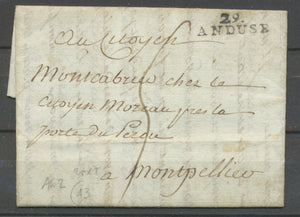 29.
ANDUSE
Au Citoyen
Montcabrié chez la
Citoyen Moreau pres la
porte du Peirou
a Montpellier
5
13